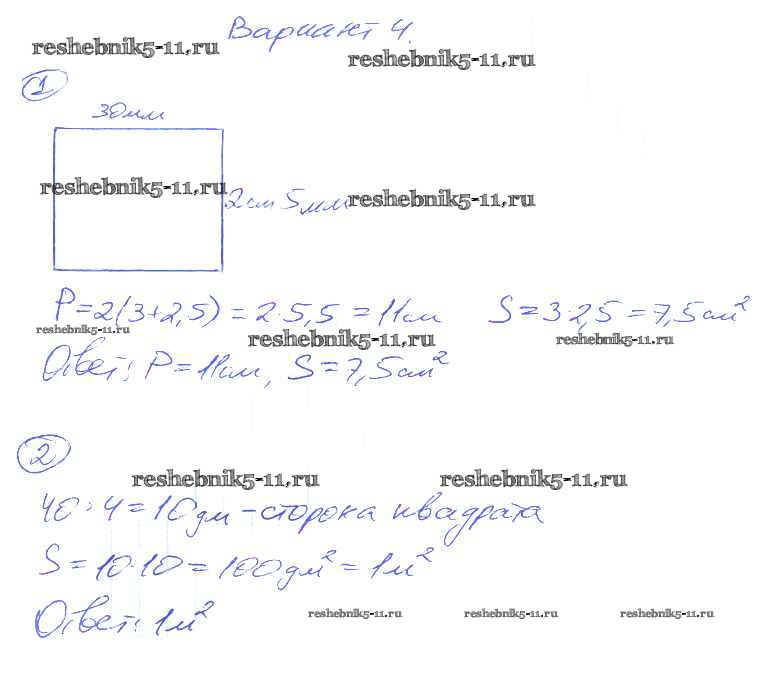 Вариант 4.
reshebnik5-11.ru
reshebnik5-11.ru
1
30мм
reshebnik5-11.ru
2см 5мм
reshebnik5-11.ru
P=2(3+2,5)=2·5,5=11см S=3·2,5=7,5см²
reshebnik5-11.ru
reshebnik5-11.ru
reshebnik5-11.ru
Ответ: P=11см, S=7,5см²
2
reshebnik5-11.ru
reshebnik5-11.ru
40:4=10дм-сторона квадрата
S=10·10=100дм²=1м²
Ответ: 1м²
reshebnik5-11.ru
reshebnik5-11.ru
reshebnik5-11.ru